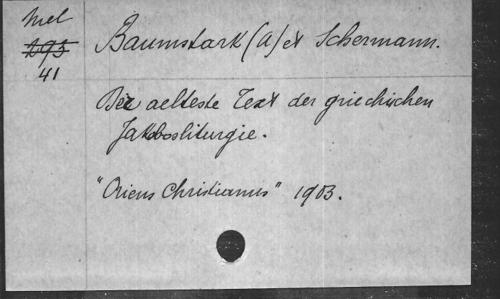 Mel
293
41
Baumstark (A) et Schermann.
Der aelteste Text der griechischen
Jakobosliturgie.
"Oriens Christianus" 1903.